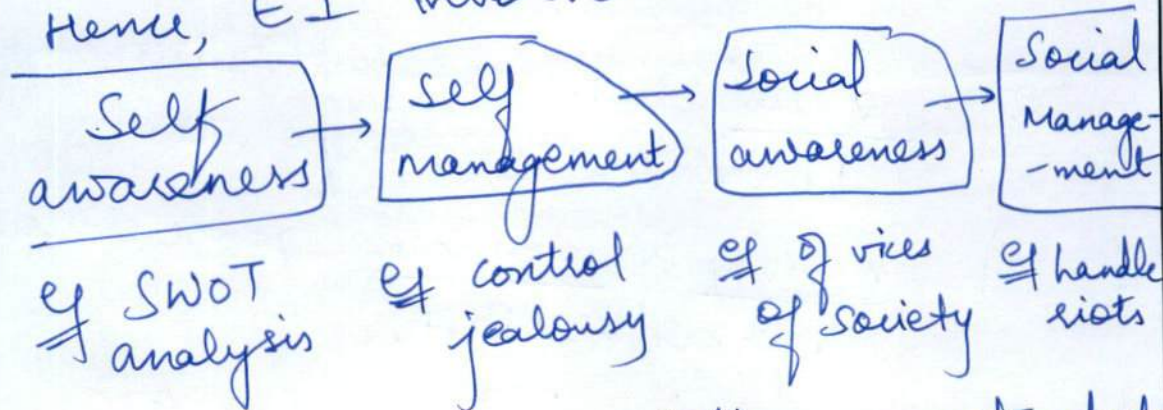 Hence, EI
Self awareness → Self management → Social awareness → Social Manage-ment
eg SWOT analysis
eg control jealousy
eg of vices of society
eg handle riots